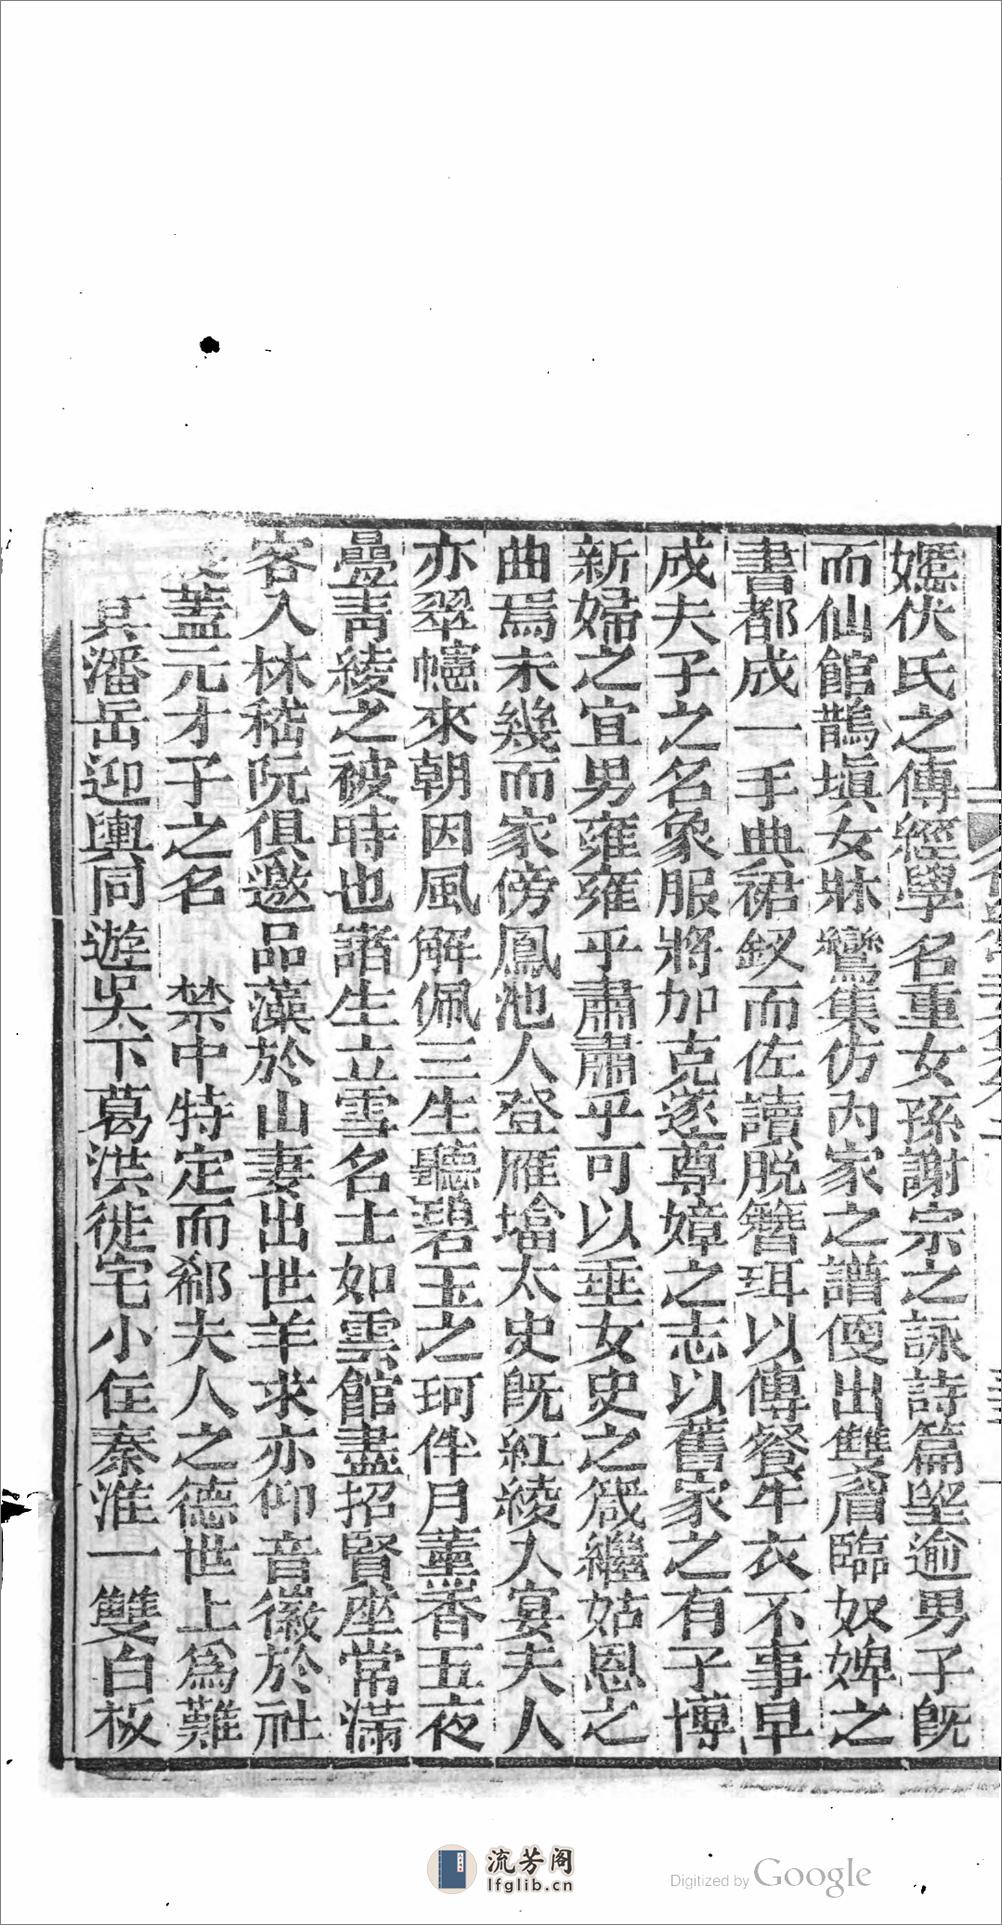 嬀伏氏之傳經學名重女孫謝宗之詠詩篇墍逾男子旣
而仙館鵲塡女牀鸞集仿內家之譜便出雙眉臨奴婢之
書都成一手典裙釵而佐讀脫簪珥以傳餐牛衣不事早
成夫子之名象服將加克遂尊嫜之志以舊家之有子博
新婦之宜男雍雍乎肅肅乎可以垂女史之箴繼姑恩之
曲焉未幾而家傍鳳池人登雁塔太史旣紅綾入宴夫人
亦翠幰來朝因風解佩三生聽碧玉之珂伴月薰香五夜
疊靑綾之被時也諸生立雪名士如雲館盡招賢座常滿
客入林嵇阮俱邀品藻於山妻出世羊求亦仰音徽於社
蓋元才子之名 禁中特定而郗夫人之德世上爲難
其潘岳迎輿同遊吳下葛洪徙宅小住秦淮一雙白板
流芳阁
lfglib.cn
Digitized by Google